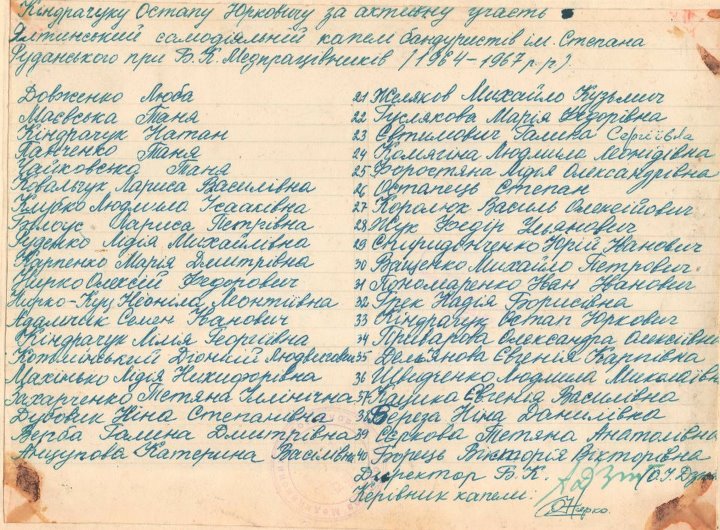 Кіндрачуку Остапу Юрковичу за активну участь
Ялтинський самодіяльній капелі бандуристів ім. Степана
Руданського при Б.К. Медпрацівників (1964-1967 р.р.)
Довженко Люба
Маєвська Таня
Кіндрачук Натан
Панченко Таня
Чайковська Таня
Ковальчук Лариса Василівна
Людмила Ісааківна
Білоус Лариса Петрівна
Руденко Лідія Михайлівна
Карпенко Марія Дмитрівна
Нирко Олексій Федорович
Нирко-Куц Неоніла Леонтіївна
Адамчик Семен Іванович
Кіндрачук Лілія Георгіївна
Діоній Людвигович
Махінько Лідія Никифорівна
Захарченко Тетяна
Дубовик Ніна Степанівна
Верба Галина Дмитрівна
Катерина Василівна
21 Желяков Михайло Кузьмич
22 Гуслякова Марія Федорівна
23 Євтимович Галина Сергіївна
24 Калягіна Людмила Леонідівна
25 Форостяна Лідія Олександрівна
26 Остапець Степан
27 Королюк Василь Олексійович
28 Жук Федір Улянович
29 Спиридонченко Юрій Іванович
30 Ващенко Михайло Петрович
31 Пономаренко Іван Іванович
32 Грек Надія Борисівна
33 Кіндрачук Остап Юркович
34 Приварова Олександра Олексіївн
35 Дем'янова Євгенія Карпівна
36 Швидченко Людмила Миколаївн
37 Євгенія Василівна
38 Береза Ніна Данилівна
39 Сєркова Тетяна Анатоліївна
40 Борець Вікторія Вікторівна
Директор Б.К.
Керівник капели: Нирко.